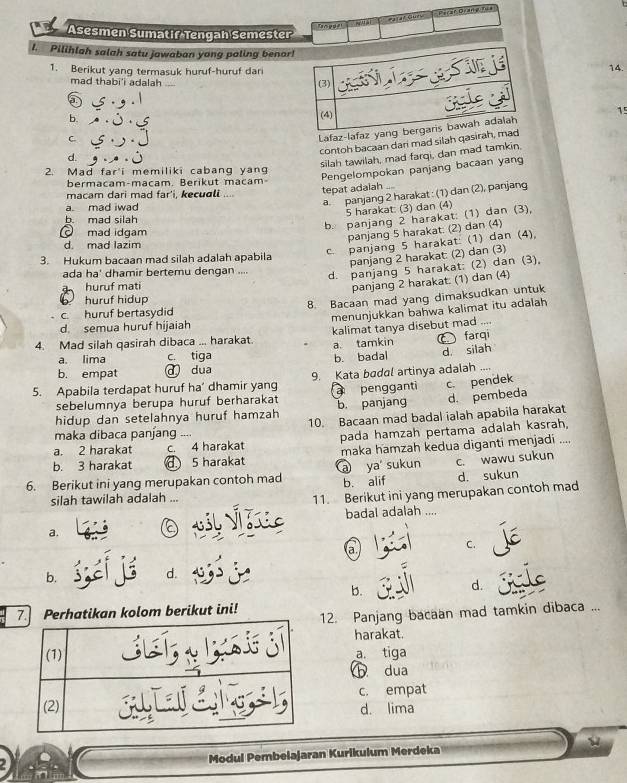 Asesmen Sumatif Tengah Semester
Tanggal
Nilai
Paraf Guru
Paraf Orang Tua
I. Pilihlah salah satu jawaban yang paling benar!
1. Berikut yang termasuk huruf-huruf dari
mad thabi'i adalah ....
a. ا ، و ، ي
b. ي ، ن ، م
c.
d. ن ، م ، و
2. Mad far'i memiliki cabang yang
bermacam-macam. Berikut macam-
macam dari mad far'i, kecuali ....
a. mad iwad
b. mad silah
c. mad idgam
d. mad lazim
3. Hukum bacaan mad silah adalah apabila
ada ha' dhamir bertemu dengan ....
a. huruf mati
b. huruf hidup
c. huruf bertasydid
d. semua huruf hijaiah
4. Mad silah qasirah dibaca ... harakat.
a. lima
c. tiga
b. empat
d. dua
5. Apabila terdapat huruf ha' dhamir yang
sebelumnya berupa huruf berharakat
hidup dan setelahnya huruf hamzah
maka dibaca panjang ....
a. 2 harakat
c. 4 harakat
b. 3 harakat
d. 5 harakat
6. Berikut ini yang merupakan contoh mad
silah tawilah adalah ...
a.
c.
b.
d.
7. Perhatikan kolom berikut ini!
(1)
(2)
(3)
(4)
Lafaz-lafaz yang bergaris bawah adalah
contoh bacaan dari mad silah qasirah, mad
silah tawilah, mad farqi, dan mad tamkin.
Pengelompokan panjang bacaan yang
tepat adalah ...
a. panjang 2 harakat : (1) dan (2), panjang
5 harakat: (3) dan (4)
b. panjang 2 harakat: (1) dan (3),
panjang 5 harakat: (2) dan (4)
c. panjang 5 harakat: (1) dan (4),
panjang 2 harakat: (2) dan (3)
d. panjang 5 harakat: (2) dan (3),
panjang 2 harakat: (1) dan (4)
8. Bacaan mad yang dimaksudkan untuk
menunjukkan bahwa kalimat itu adalah
kalimat tanya disebut mad ....
a. tamkin
c. farqi
b. badal
d. silah
9. Kata badal artinya adalah ....
a. pengganti
c. pendek
b. panjang
d. pembeda
10. Bacaan mad badal ialah apabila harakat
pada hamzah pertama adalah kasrah,
maka hamzah kedua diganti menjadi ....
a. ya' sukun
c. wawu sukun
b. alif
d. sukun
11. Berikut ini yang merupakan contoh mad
badal adalah ....
a.
c.
b.
d.
12. Panjang bacaan mad tamkin dibaca ...
harakat.
a. tiga
b. dua
c. empat
d. lima
14.
15
Modul Pembelajaran Kurikulum Merdeka